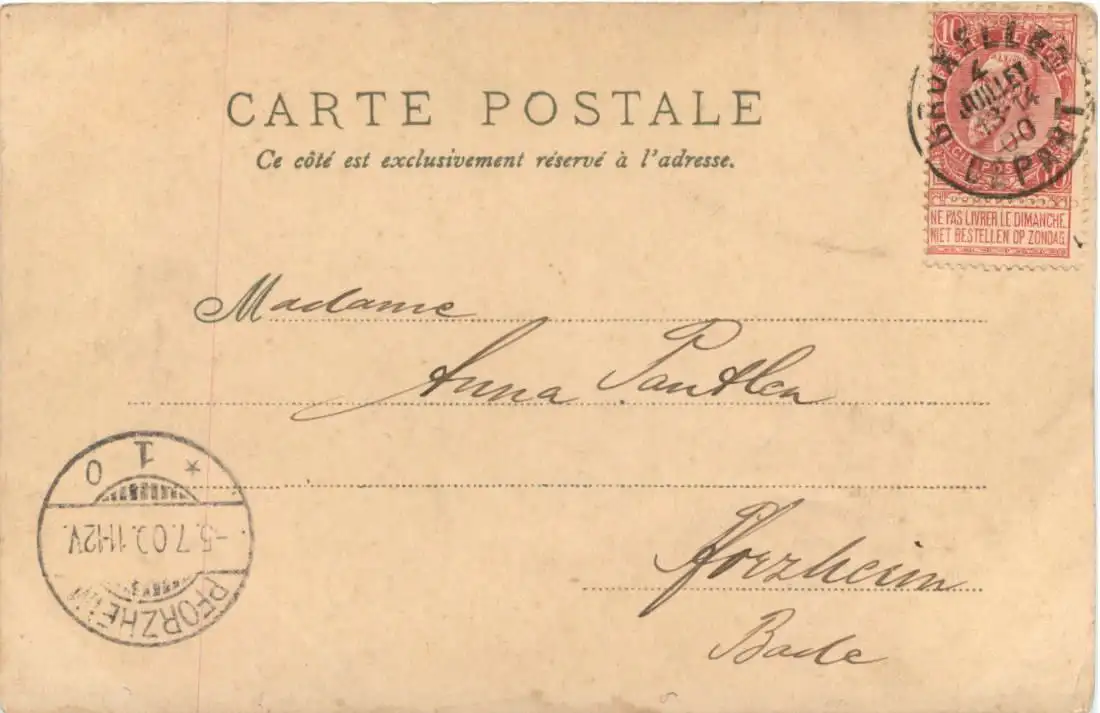 CARTE POSTALE
Ce côté est exclusivement réservé à l'adresse.
10
BRUXELLES
4
JUILLET
13-14
00
DÉPART
NE PAS LIVRER LE DIMANCHE.
NIET BESTELLEN OP ZONDAG.
Madame
Anna Panthen
Pforzheim
Bade
PFORZHEIM
-5.7.00.11-12V.
* 1 0